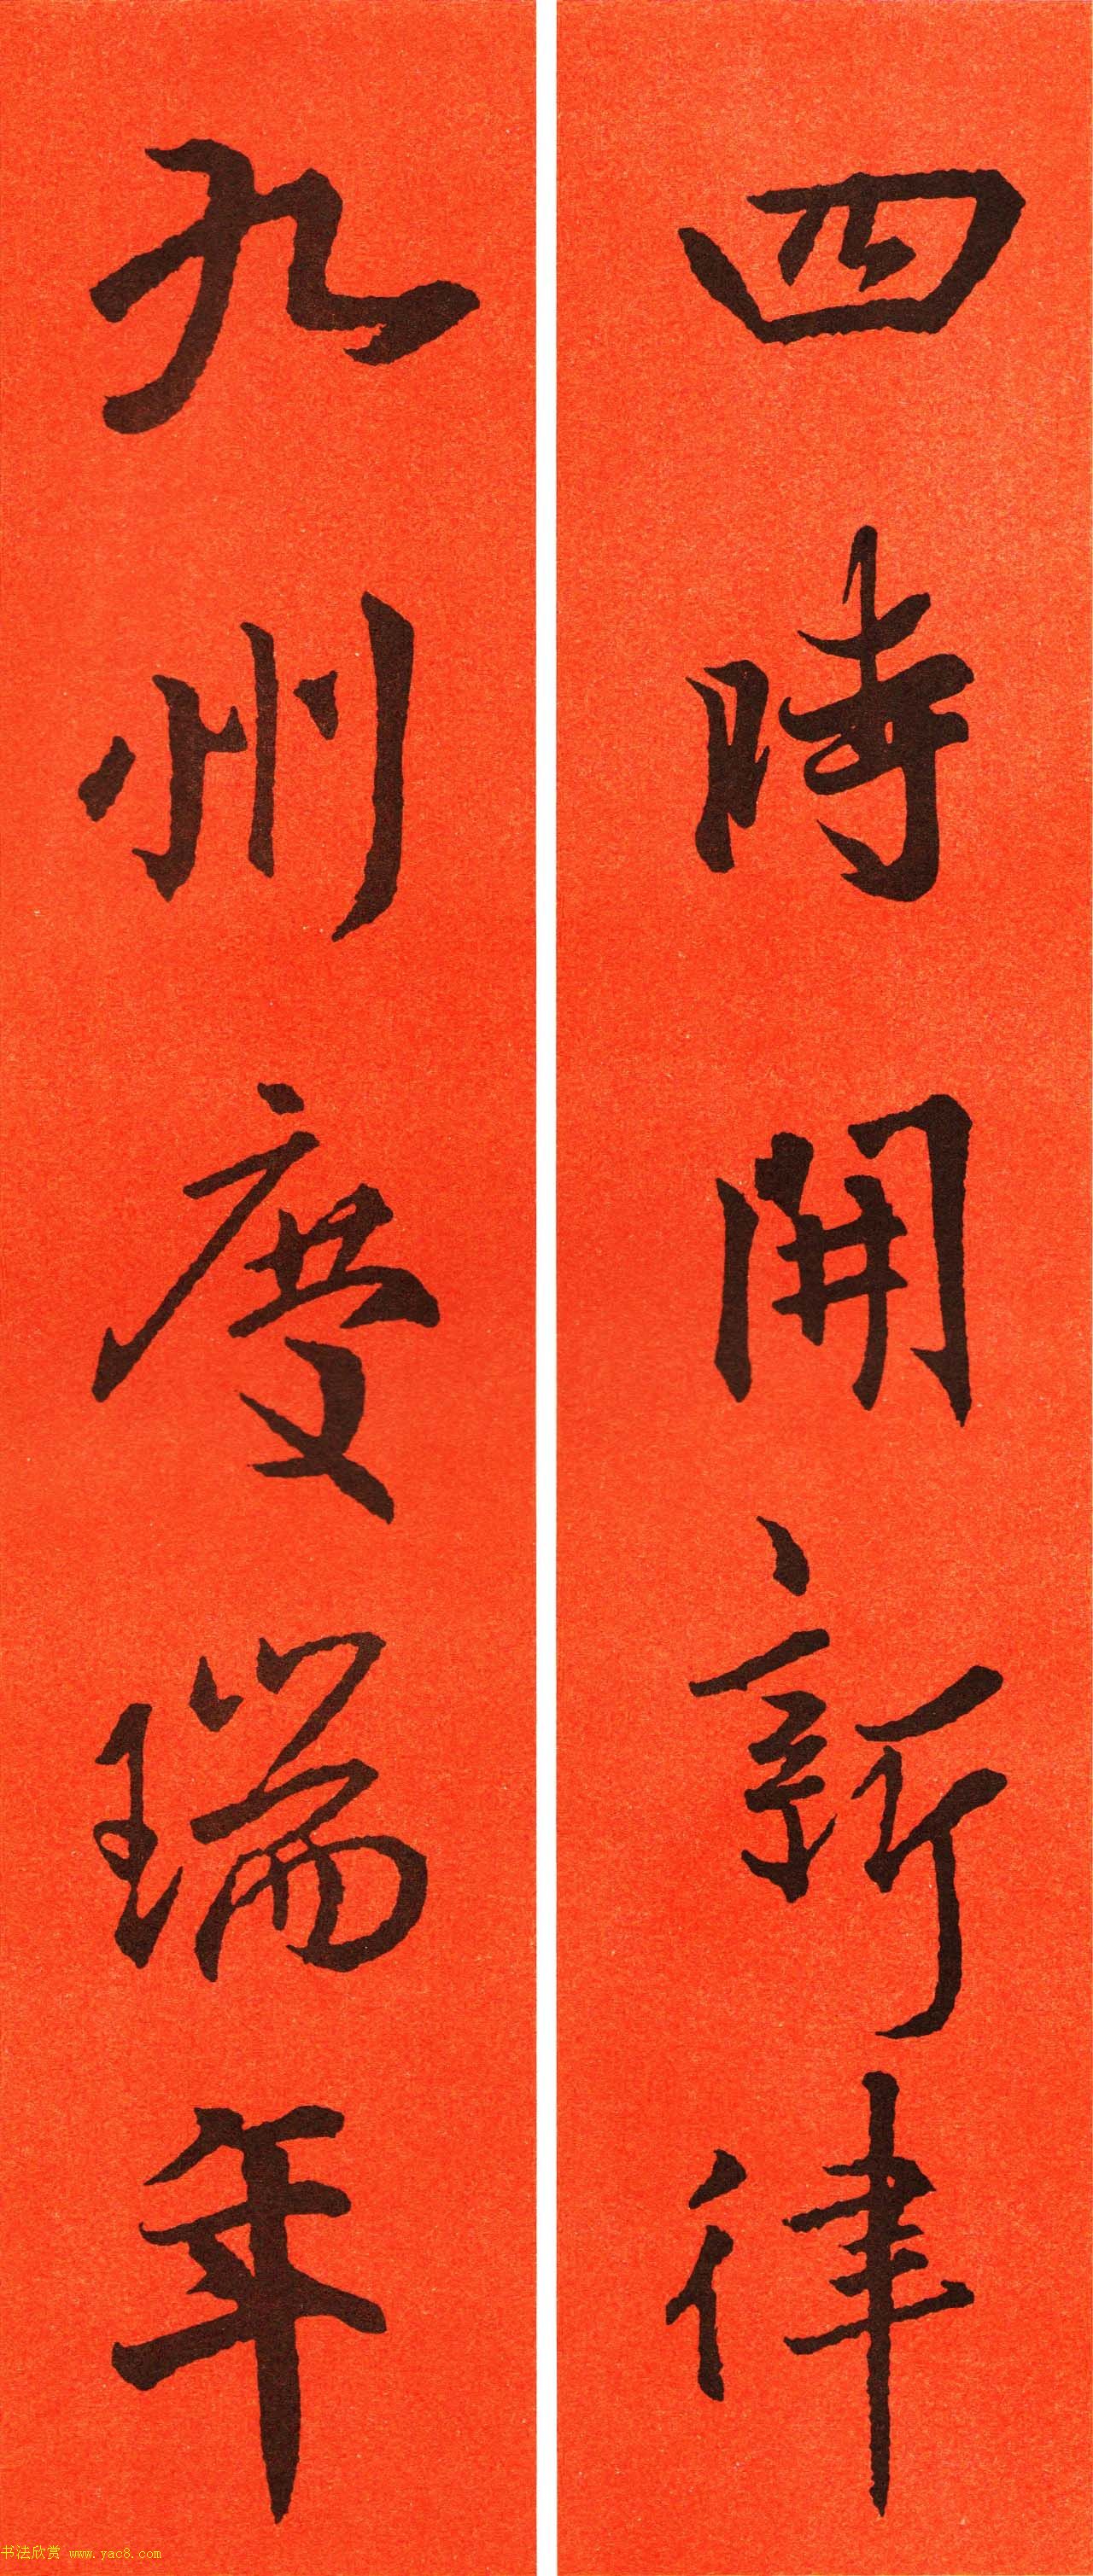 四時開新律
九州度瑞年
书法欣赏 www.yac8.com